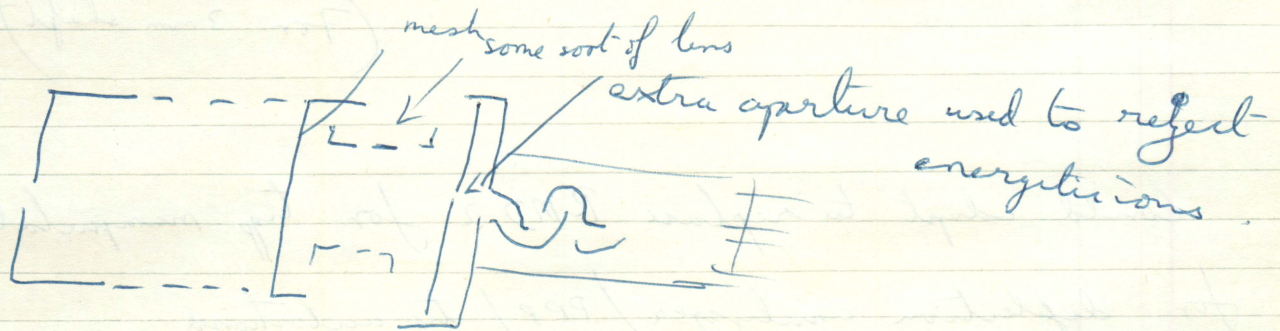 mesh some sort of lens
extra aperture used to reject
energetic ions.